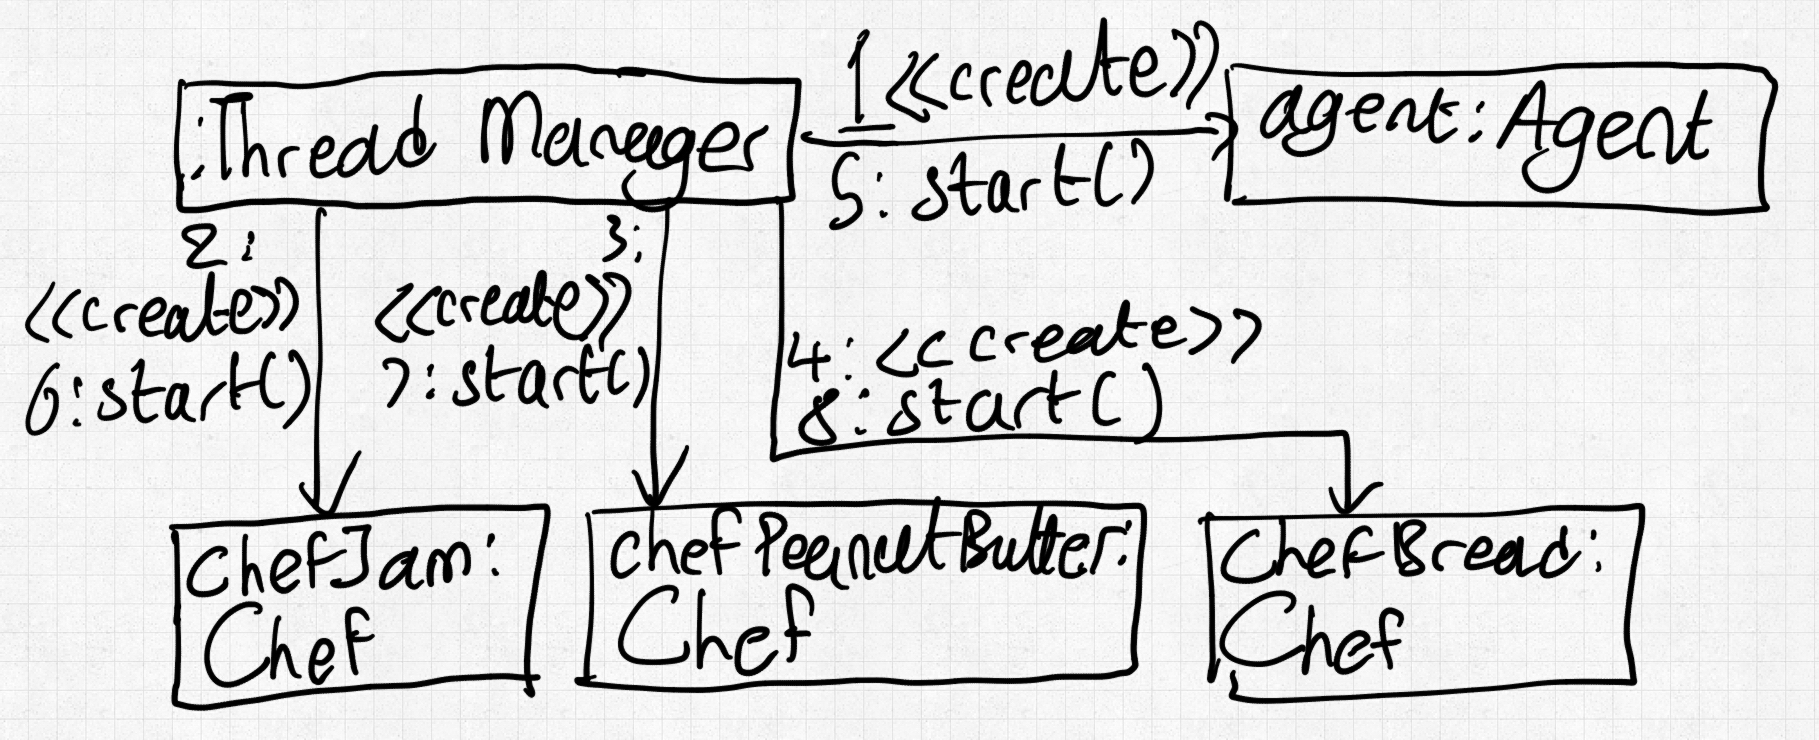 :Thread Manager
1 <<create>>
5: start()
agent: Agent
2:
<<create>>
6: start()
3:
<<create>>
7: start()
4: <<create>>
8: start()
chefJam:
Chef
chefPeanutButter:
Chef
chefBread:
Chef